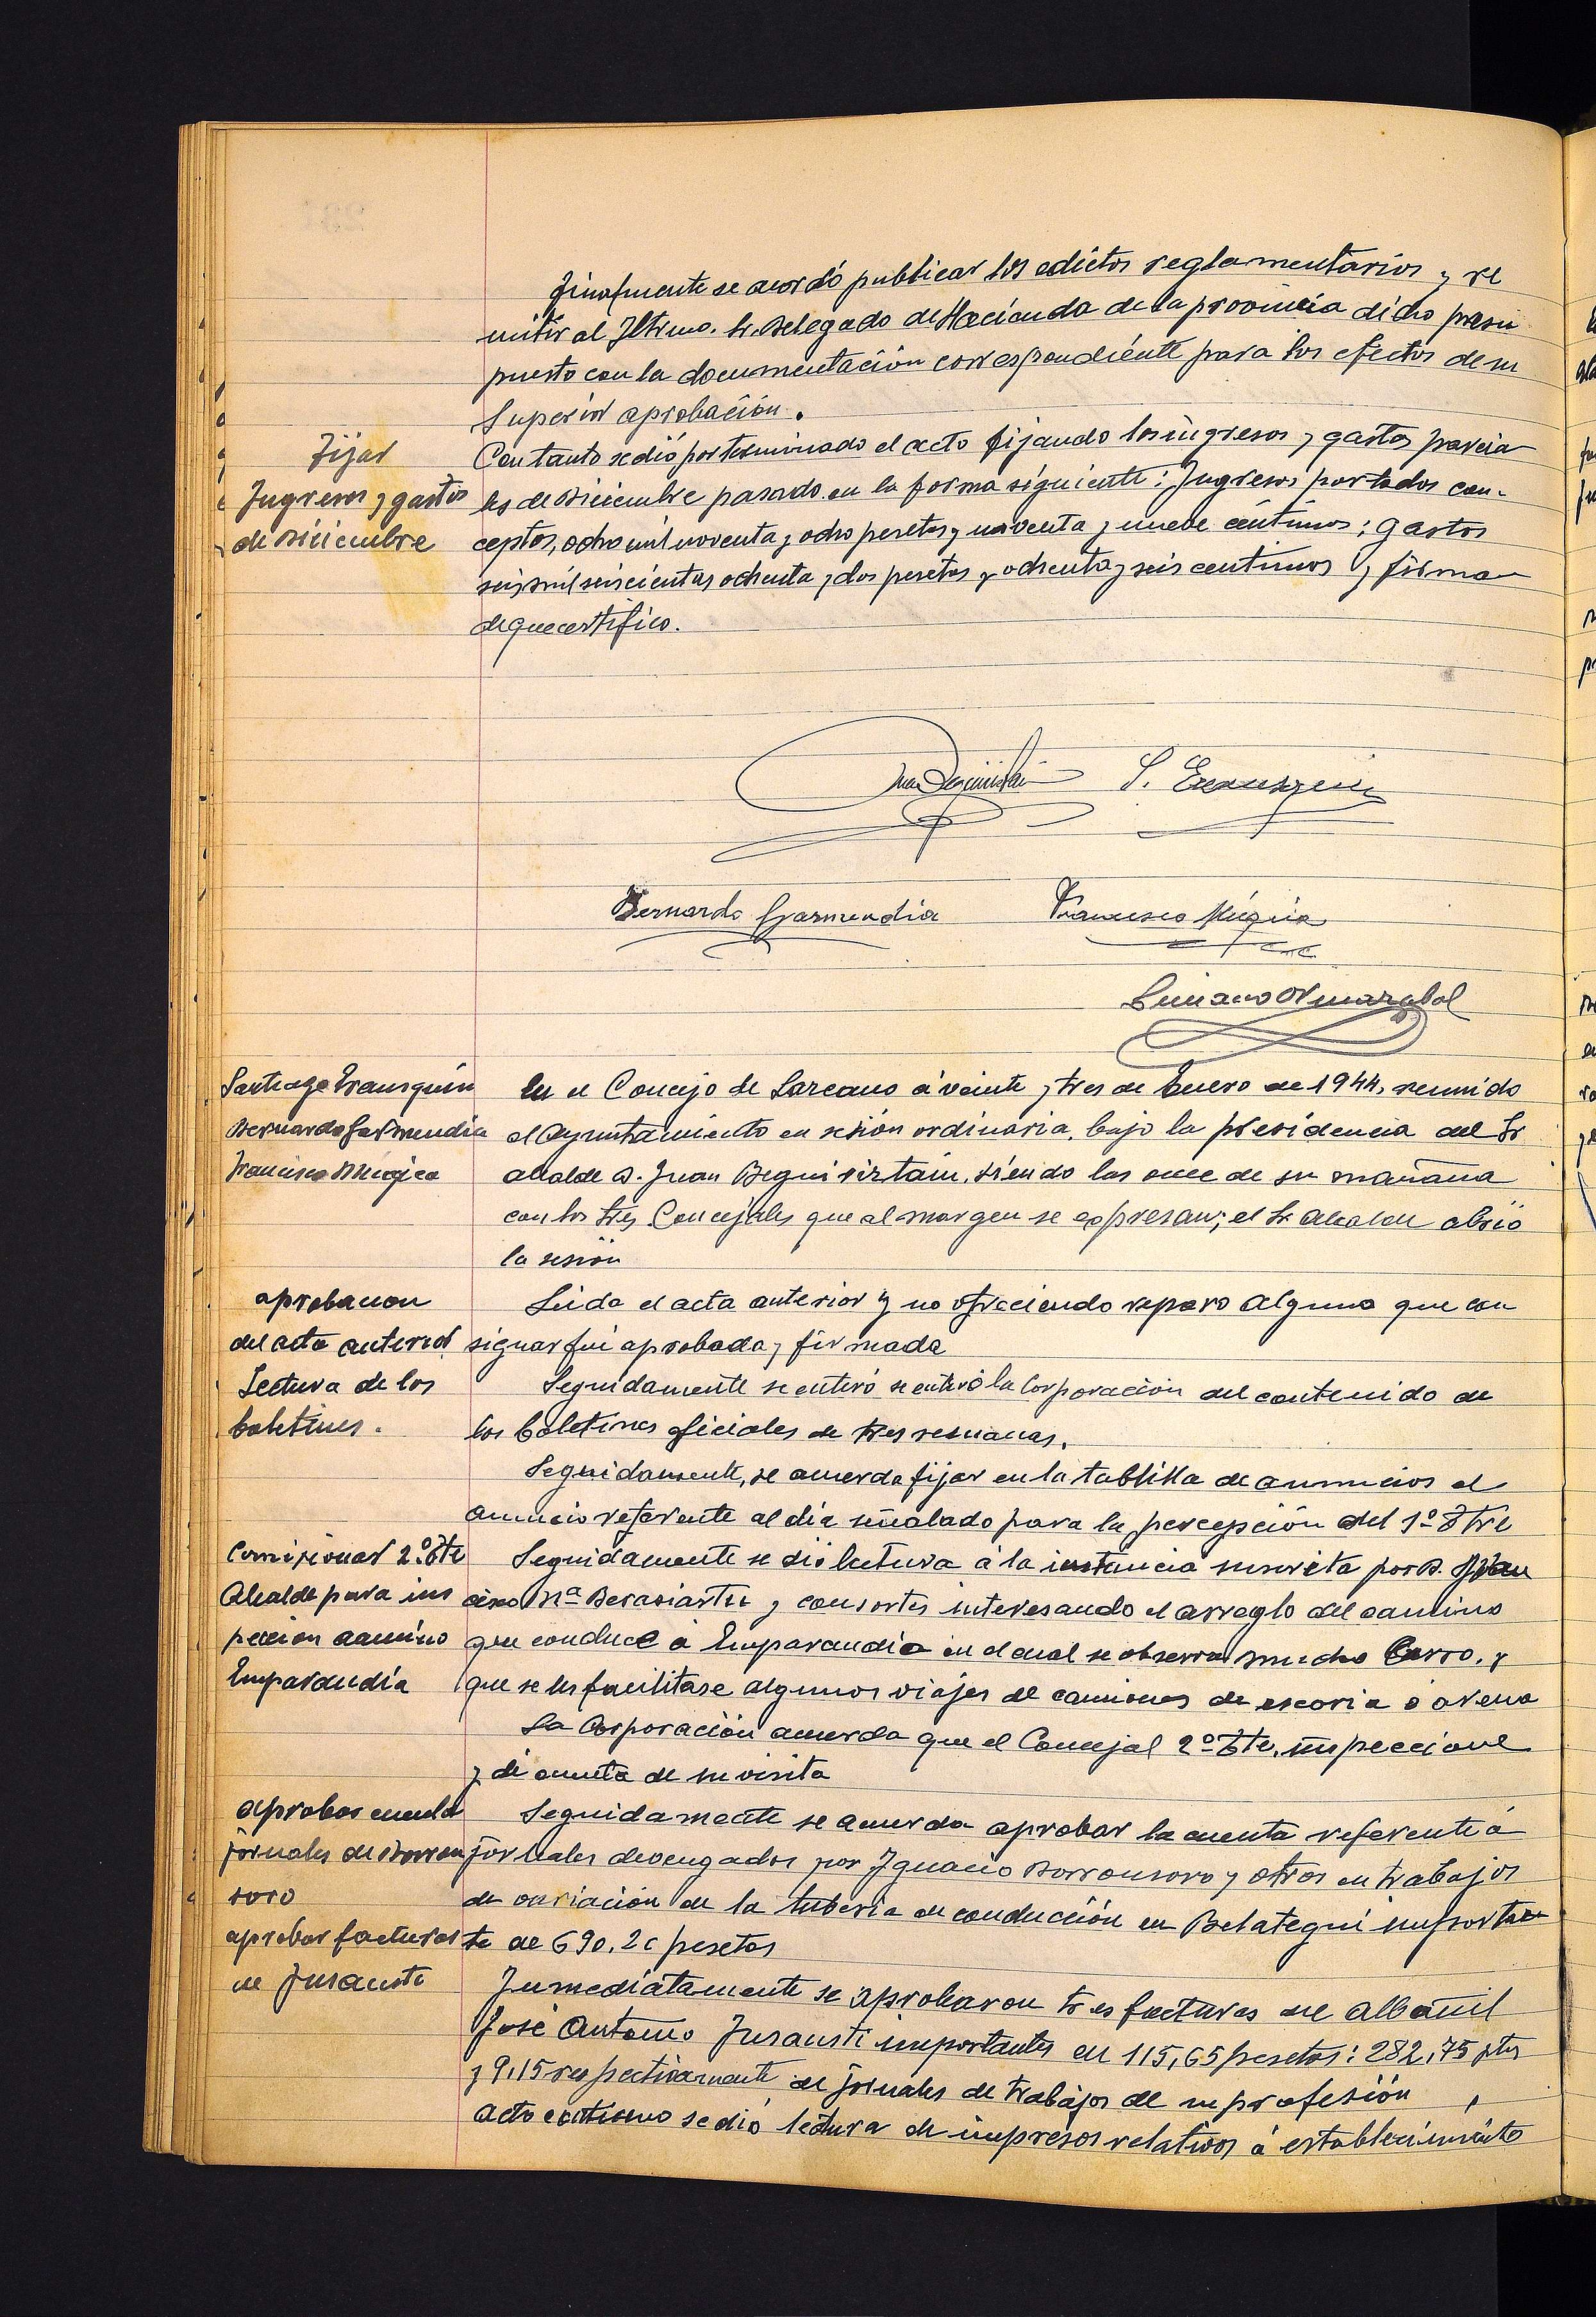 Finalmente se acordó publicar los edictos reglamentarios y re
mitir al Iltmo. Sr. Delegado de Hacienda de la provincia dicho presu
puesto con la documentación correspondiente para los efectos de su
Superior aprobación.
Fijar
Ingresos y gastos
de Diciembre
Con tanto se dió por terminado el acto fijando los ingresos y gastos parcia
les de Diciembre pasado en la forma siguiente: Ingresos por todos con-
ceptos, ocho mil noventa y ocho pesetas y noventa y nueve céntimos; gastos
seis mil seiscientas ochenta y dos pesetas y ochenta y seis centimos y firman
de que certifico.
Bernardo Garmendia Francisco Múgica
Santiago
Bernardo Garmendia
Francisco Mugica
En el Concejo de Lazcano á veinte y tres de Enero de 1944, reunido
el Ayuntamiento en sesión ordinaria, bajo la presidencia del Sr
alcalde D. Juan Beguiristain, siendo las once de su mañana
con los tres Concejales que al margen se expresan; el Sr Alcalde abrió
la sesión
aprobacion
del acta anterior
Leida el acta anterior y no ofreciendo reparo alguno que con
signar fué aprobada y firmada
Lectura de los
boletines.
Seguidamente se enteró se enteró la Corporación del contenido de
los boletines oficiales de tres semanas.
Seguidamente, se acuerda fijar en la tablilla de anuncios el
anuncio referente al día señalado para la percepción del 1º Ttre
Comisionar 2º Tte
Alcalde para ins
peccion camino
Emparandia
Seguidamente se dió lectura á la instancia suscrita por D. Fran
cisco Mª Berasiartu y consortes interesando el arreglo del camino
que conduce á Emparandia en el cual se observa mucho barro, y
que se les facilitase algunos viajes de camiones de escoria ó arena
La Corporación acuerda que el Concejal 2º Tte. inspeccione
y dé cuenta de su visita
aprobar cuenta
jornales de Borron
soro
Seguidamente se acuerda aprobar la cuenta referente á
jornales devengados por Ignacio Borronsoro y otros en trabajos
de variación de la tuberia de conducción en Belategui importan
te de 690.20 pesetas
aprobar facturas
de Insausti
Inmediatamente se aprobaron tres facturas del albañil
José Antonio Insausti importantes en 115,65 pesetas: 282,75 ptas
y 9,15 respectivamente de jornales de trabajos de su profesión
Acto continuo se dió lectura de impresos relativos á establecimiento